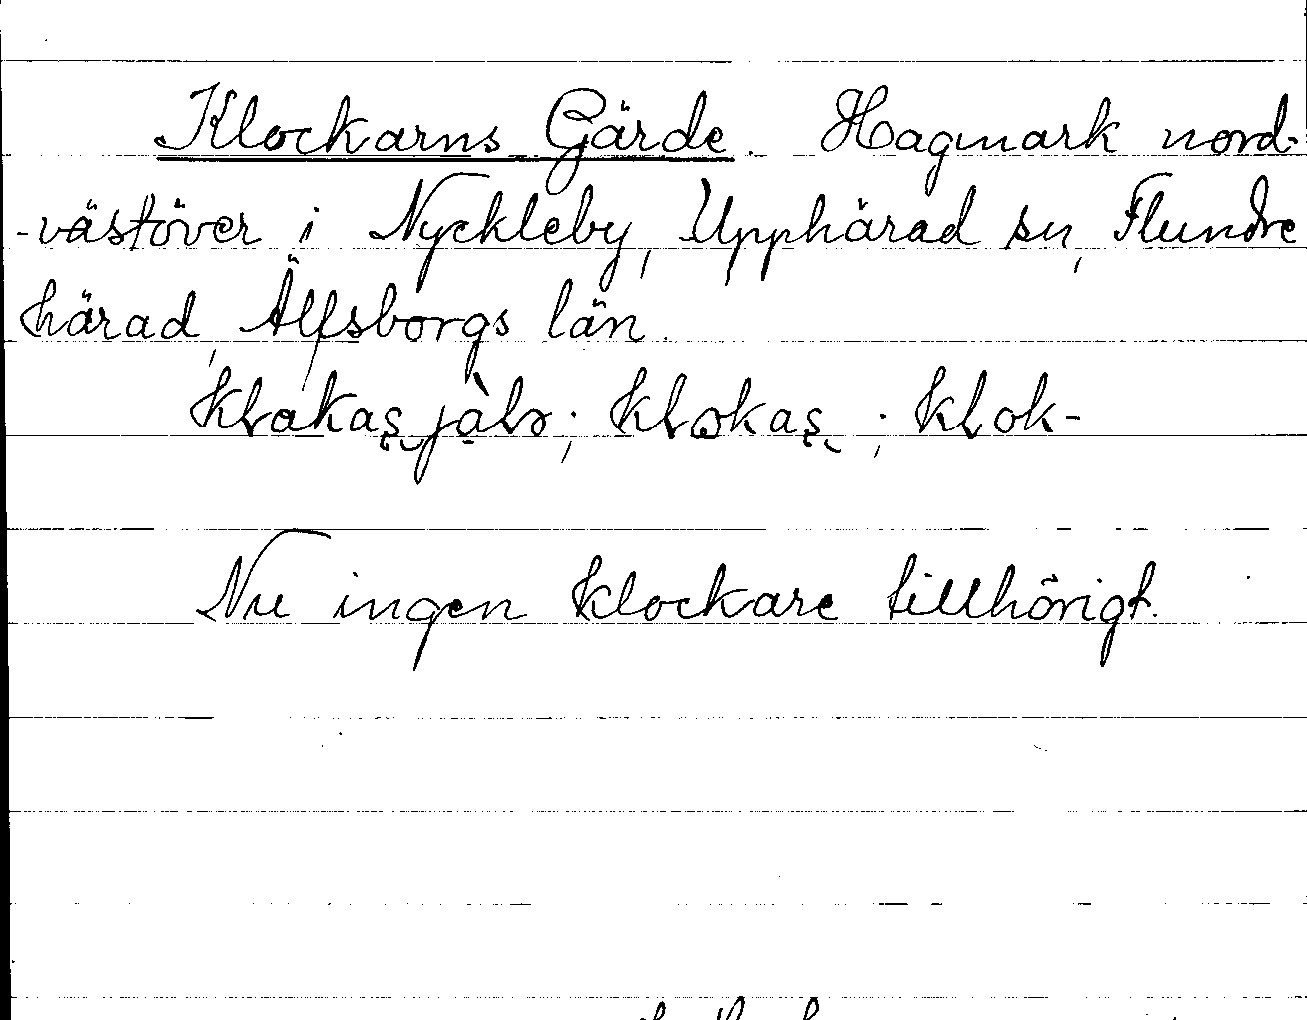 Klockarns Gärde. Hagmark nord-
-västöver i Nyckleby, Upphärad sn, Flundre
härad, Älfsborgs län.
Nu ingen klockare tillhörigt.